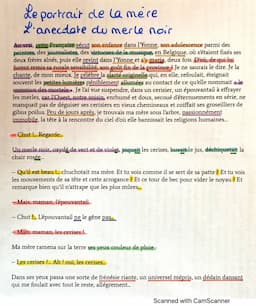 Le portrait de la mère
L'anecdote du merle noir
Au vrai, cette Française vécut son enfance dans l'Yonne, son adolescence parmi des
peintres, des journalistes, des virtuoses de la musique, en Belgique, où s'étaient fixés ses
deux frères aînés, puis elle revint dans l'Yonne et s'y maria, deux fois. D'où, de qui lui
furent remis sa rurale sensibilité, son goût fin de la province ? Je ne saurais le dire. Je la
chante, de mon mieux. Je célèbre la clarté originelle qui, en elle, refoulait, éteignait
souvent les petites lumières péniblement allumées au contact de ce qu'elle nommait « le
commun des mortels ». Je l'ai vue suspendre, dans un cerisier, un épouvantail à effrayer
les merles, car l'Ouest, notre voisin, enrhumé et doux, secoué d'éternuements en série, ne
manquait pas de déguiser ses cerisiers en vieux chemineaux et coiffait ses groseilliers de
gibus poilus. Peu de jours après, je trouvais ma mère sous l'arbre, passionnément
immobile, la tête à la rencontre du ciel d'où elle bannissait les religions humaines...
– Chut !... Regarde...
Un merle noir, oxydé de vert et de violet, piquait les cerises, buvait le jus, déchiquetait la
chair rosée...
– Qu'il est beau !... chuchotait ma mère. Et tu vois comme il se sert de sa patte ? Et tu vois
les mouvements de sa tête et cette arrogance ? Et ce tour de bec pour vider le noyau ? Et
remarque bien qu'il n'attrape que les plus mûres...
– Mais, maman, l'épouvantail...
– Chut !... L'épouvantail ne le gêne pas...
– Mais, maman, les cerises !...
Ma mère ramena sur la terre ses yeux couleur de pluie :
– Les cerises ?... Ah ! oui, les cerises...
Dans ses yeux passa une sorte de frénésie riante, un universel mépris, un dédain dansant
qui me foulait avec tout le reste, allègrement...
Scanned with CamScanner